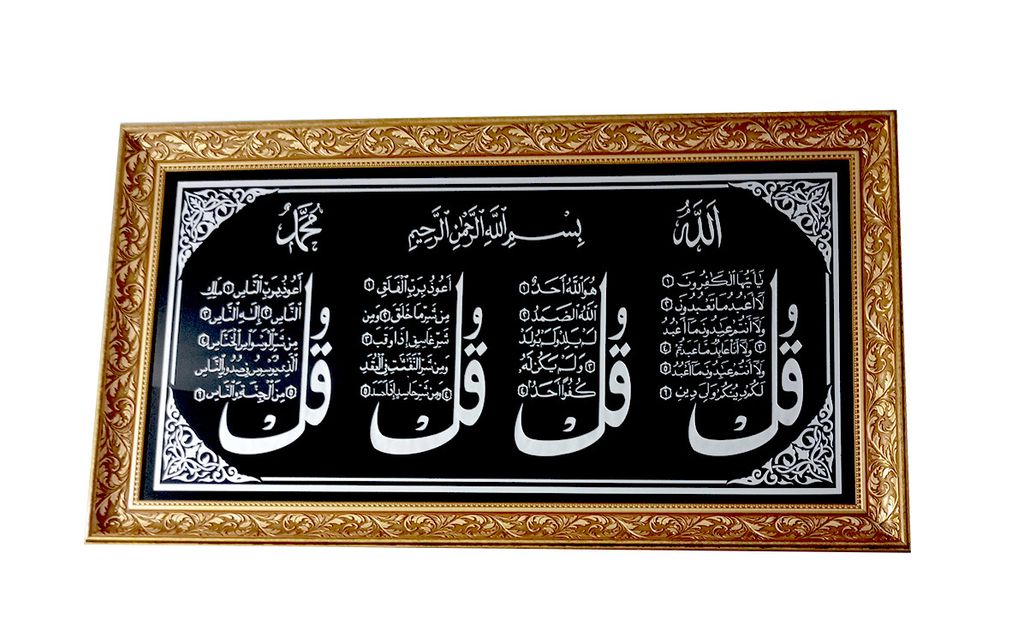 اللّٰه
بِسْمِ ٱللَّهِ ٱلرَّحْمَٰنِ ٱلرَّحِيمِ
مُحَمَّد
قُلْ
يَٰٓأَيُّهَا ٱلْكَٰفِرُونَ ١
لَآ أَعْبُدُ مَا تَعْبُدُونَ ٢
وَلَآ أَنتُمْ عَٰبِدُونَ مَآ أَعْبُدُ
٣ وَلَآ أَنَا۠ عَابِدٌ مَّا عَبَدتُّمْ ٤
وَلَآ أَنتُمْ عَٰبِدُونَ مَآ أَعْبُدُ ٥
لَكُمْ دِينُكُمْ وَلِيَ دِينِ ٦
قُلْ
هُوَ ٱللَّهُ أَحَدٌ ١
ٱللَّهُ ٱلصَّمَدُ ٢
لَمْ يَلِدْ وَلَمْ يُولَدْ
٣ وَلَمْ يَكُن لَّهُۥ
كُفُوًا أَحَدٌۢ ٤
قُلْ
أَعُوذُ بِرَبِّ ٱلْفَلَقِ ١
مِن شَرِّ مَا خَلَقَ ٢ وَمِن
شَرِّ غَاسِقٍ إِذَا وَقَبَ ٣
وَمِن شَرِّ ٱلنَّفَّٰثَٰتِ فِي ٱلْعُقَدِ
٤ وَمِن شَرِّ حَاسِدٍ إِذَا حَسَدَ ٥
قُلْ
أَعُوذُ بِرَبِّ ٱلنَّاسِ ١ مَلِكِ
ٱلنَّاسِ ٢ إِلَٰهِ ٱلنَّاسِ ٣
مِن شَرِّ ٱلْوَسْوَاسِ ٱلْخَنَّاسِ ٤
ٱلَّذِي يُوَسْوِسُ فِي صُدُورِ ٱلنَّاسِ
٥ مِنَ ٱلْجِنَّةِ وَٱلنَّاسِ ٦